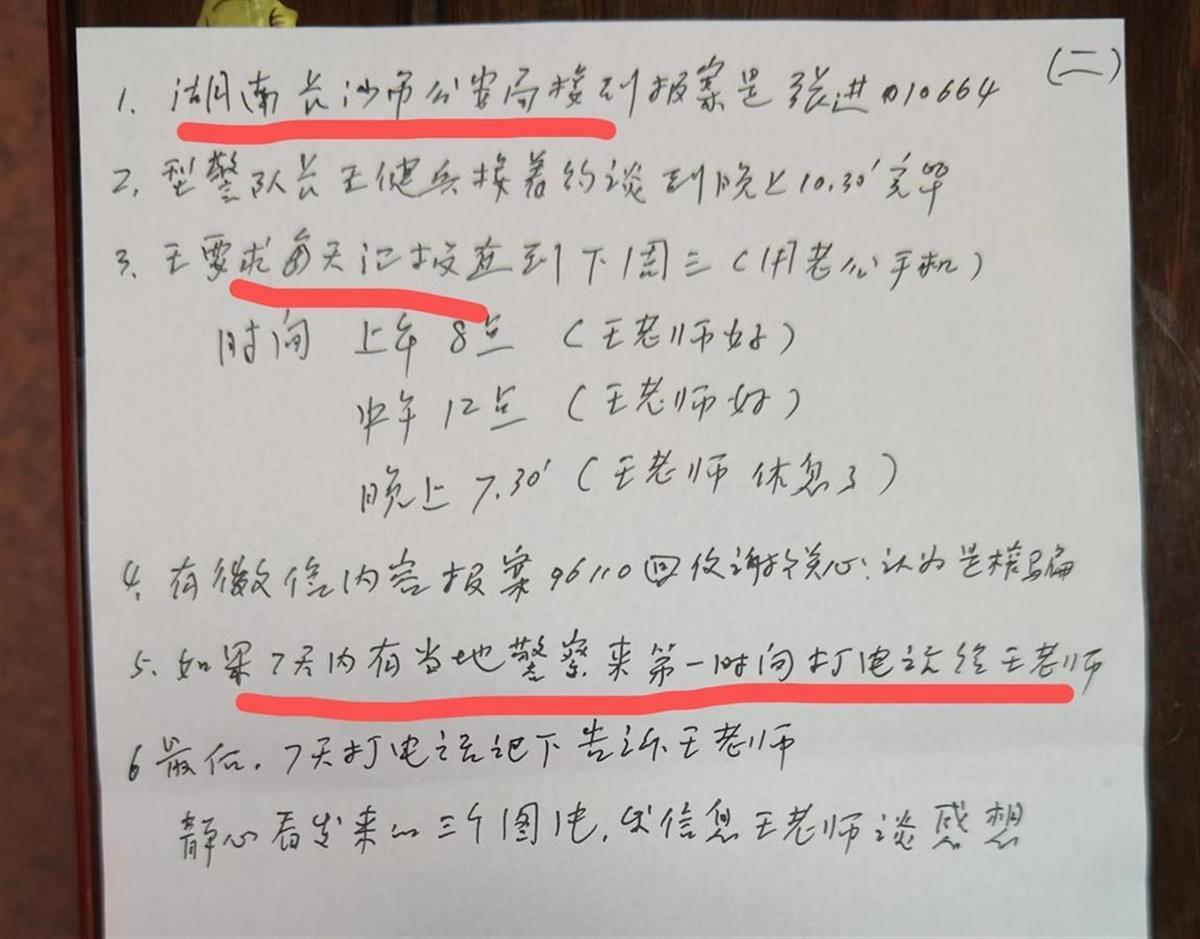 (二)
1. 湖南长沙市公安局接到报案是张进010664
2. 型警队长王健兵接着约谈到晚上10.30'完毕
3. 王要求每天汇报直到下周三(用老公手机)
时间 上午8点 (王老师好)
中午12点 (王老师好)
晚上7.30' (王老师 休息了)
4. 有微信内容报案96110回仅谢谢关心:认为是榨骗
5. 如果7天内有当地警察来第一时间打电话给王老师
6 最后.7天打电话记下告诉王老师
静心看发来的三个图片,发信息王老师谈感想